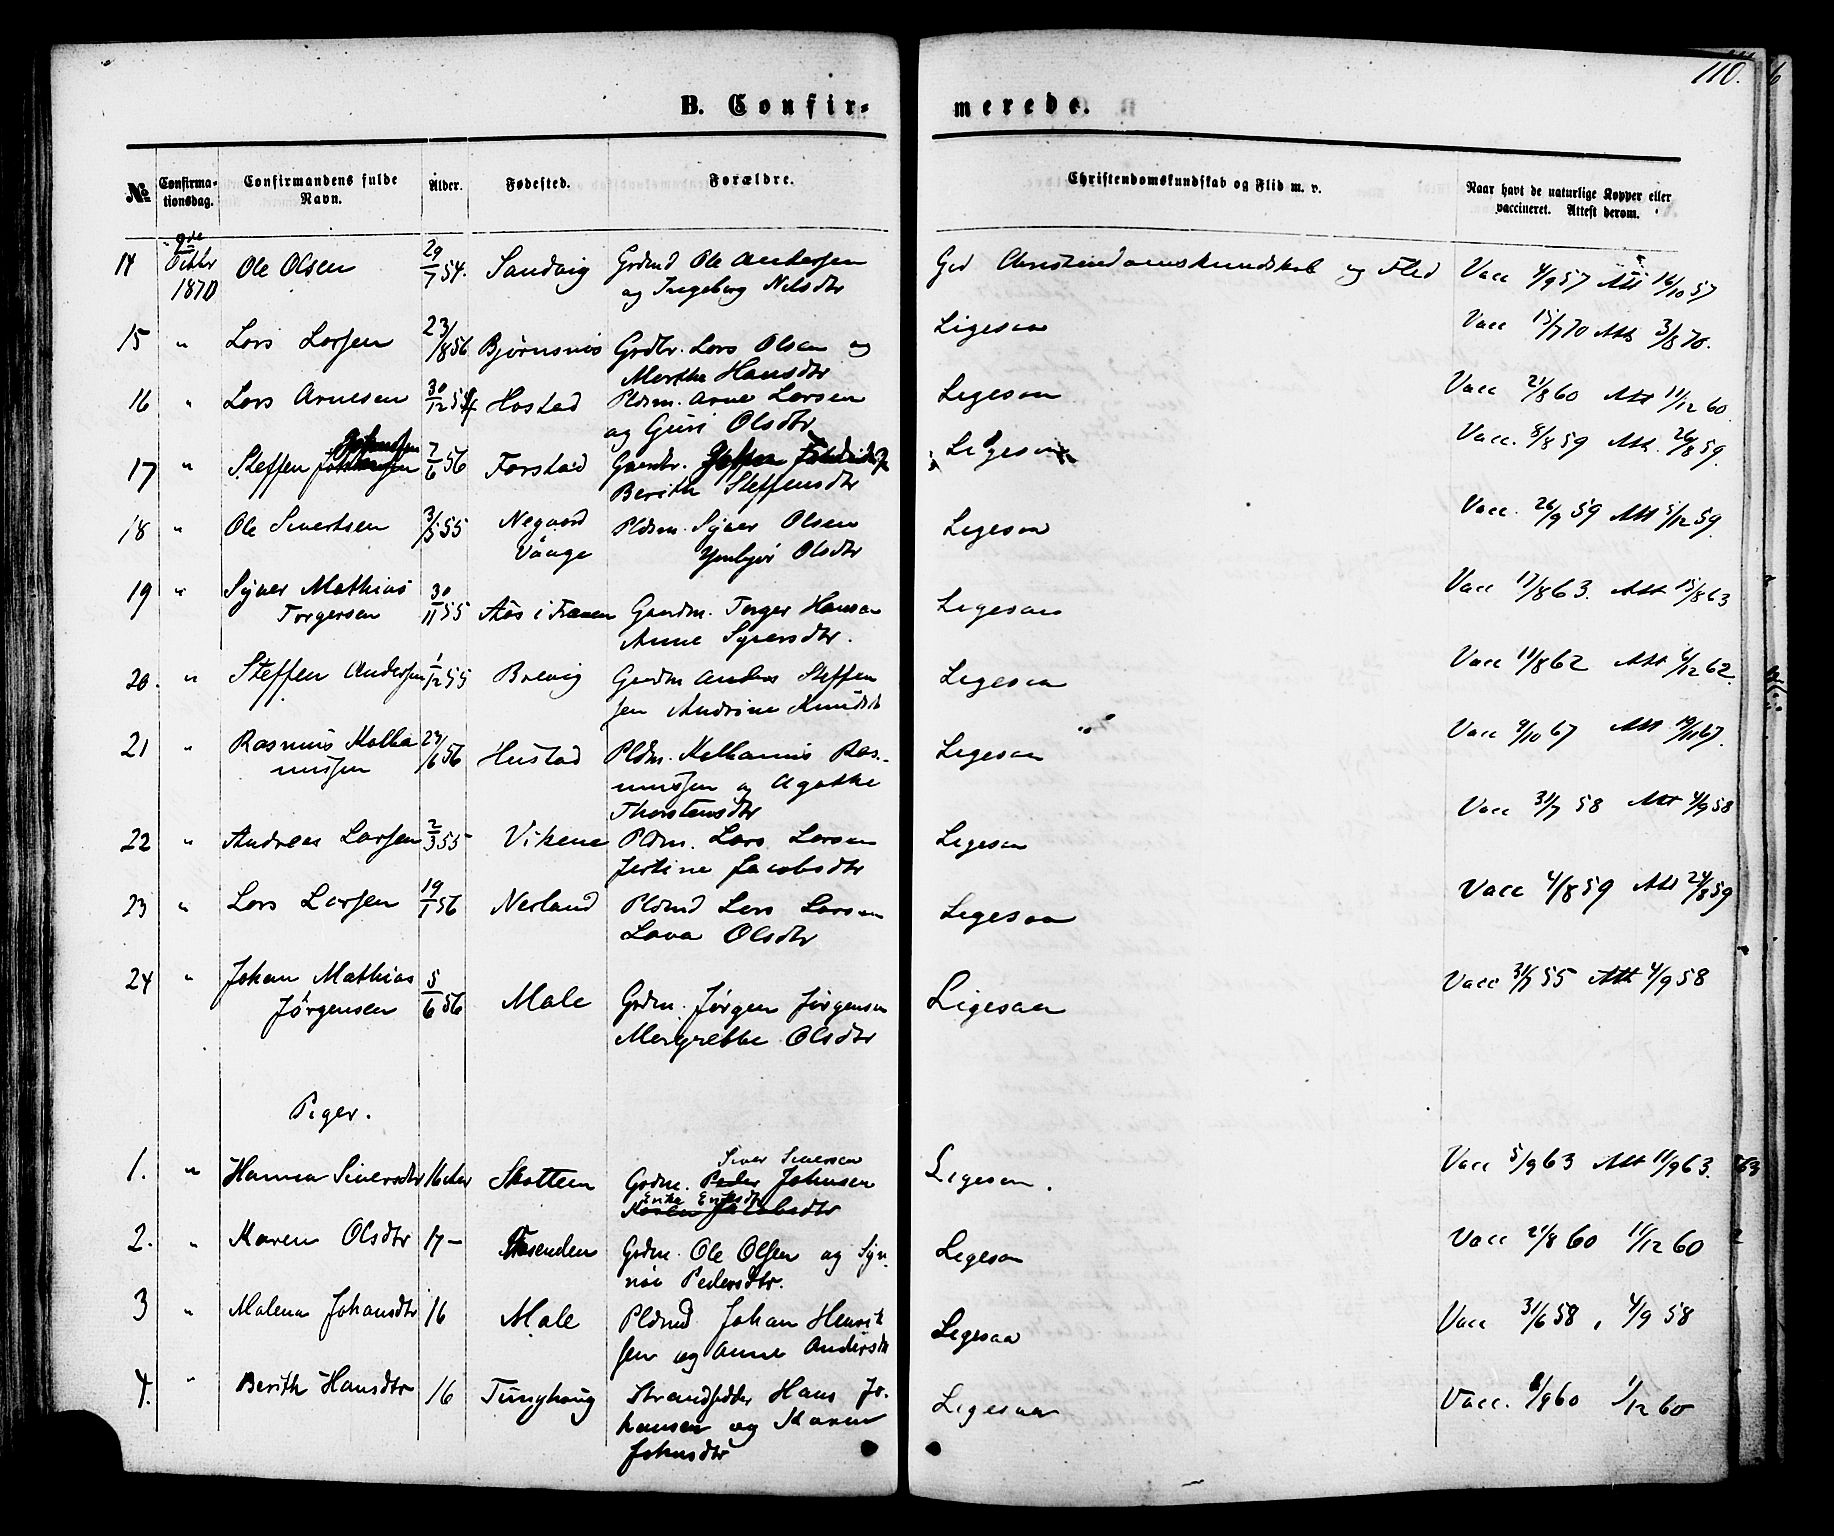 110.
B. Confir-
merede.
№
Confirma-
tionsdag.
Confirmandens fulde
Navn.
Alder.
Fødested.
Forældre.
Christendomskundskab og Flid m. v.
Naar havt de naturlige Kopper eller
vaccineret. Attest derom.
14 9de Octbr 1870 Ole Olsen 29/7 54. Sandvig Grdmd Ole Andersen
og Ingeborg Nilsdtr
God Christendomskundskab og Flid Vacc 4/9 57 Att 16/10 57
15 " Lars Larsen 23/8 56 Bjørnsnøs Grdbr. Lars Olsen og
Marthe Hansdtr
Ligesaa Vacc 15/7 70 Att 3/8 70.
16 " Lars Arnesen 30/12 54 Hostad Pldsm. Arne Larsen
og Guri Olsdtr
Ligesaa Vacc 21/8 60 Att 11/12 60
17 " Steffen 7/6 56 Farstad Gaardbr.
Berith Steffensdtr
Ligesaa Vacc. 8/8 59 Att. 26/8 59.
18 " Ole Sivertsen 3/5 55 Negaard
Vaage
Pldsm. Syver Olsen
Olsdtr
Ligesaa Vacc. 26/9 59 Att 5/12 59.
19 " Syver Mathias
Torgersen
30/11 55 Aas i Frænen Gaardm. Torger Hansen
Anne Syversdtr.
Ligesaa Vacc 17/8 63. Att 15/8 63
20. " Steffen Andersen 1/12 55 Brevig Gaardm Anders Steffen
sen Andrine Knudsdt
Ligesaa Vacc 11/8 62 Att 6/12 62.
21 " Rasmus Kolba
nussen
24/6 56 Hustad Pldm. Kolbanus Ras-
mussen og Agathe
Thorstensdtr
Ligesaa Vacc 9/10 67 Att 19/11 67.
22 " Andreas Larsen 2/3 55 Vikene Pldm. Lars Larsen
Jertine Jacobsdtr
Ligesaa Vacc 31/7 58 Att 4/9 58
23 " Lars Larsen 19/1 56 Nerland Pldmd Lars Larsen
Lava Olsdtr
Ligesaa Vacc 4/8 59 Att 24/8 59
24 " Johan Mathias
Jørgensen
5/6 56 Male Grdm. Jørgen Jørgensen
Margrethe Olsdtr
Ligesaa Vacc 31/7 55 Att 4/9 58
Piger.
1. " Hanna Siversdtr 16 Aar Skotten Siver Siversen
Grdm. Peder Johnsen
Erika Eriksdtr
Karen Jacobsdtr
Ligesaa. Vacc 5/9 63 Att 11/9 63.
2. " Karen Olsdtr 17 - Grdm. Ole Olsen og Syn-
nøi Pedersdtr.
Ligesaa Vacc 21/8 60 11/12 60
3 " Malena Johansdtr 16 Male Pldmd Johan Henrik
sen og Anne Andersdt
Ligesaa Vacc 31/6 58, 4/9 58
4. " Berith Hansdtr 16 Tunghaug Strandsidder Hans Jo-
hansen og Karen
Johnsdtr
Ligesaa Vacc. 6/9 60 1/12 60